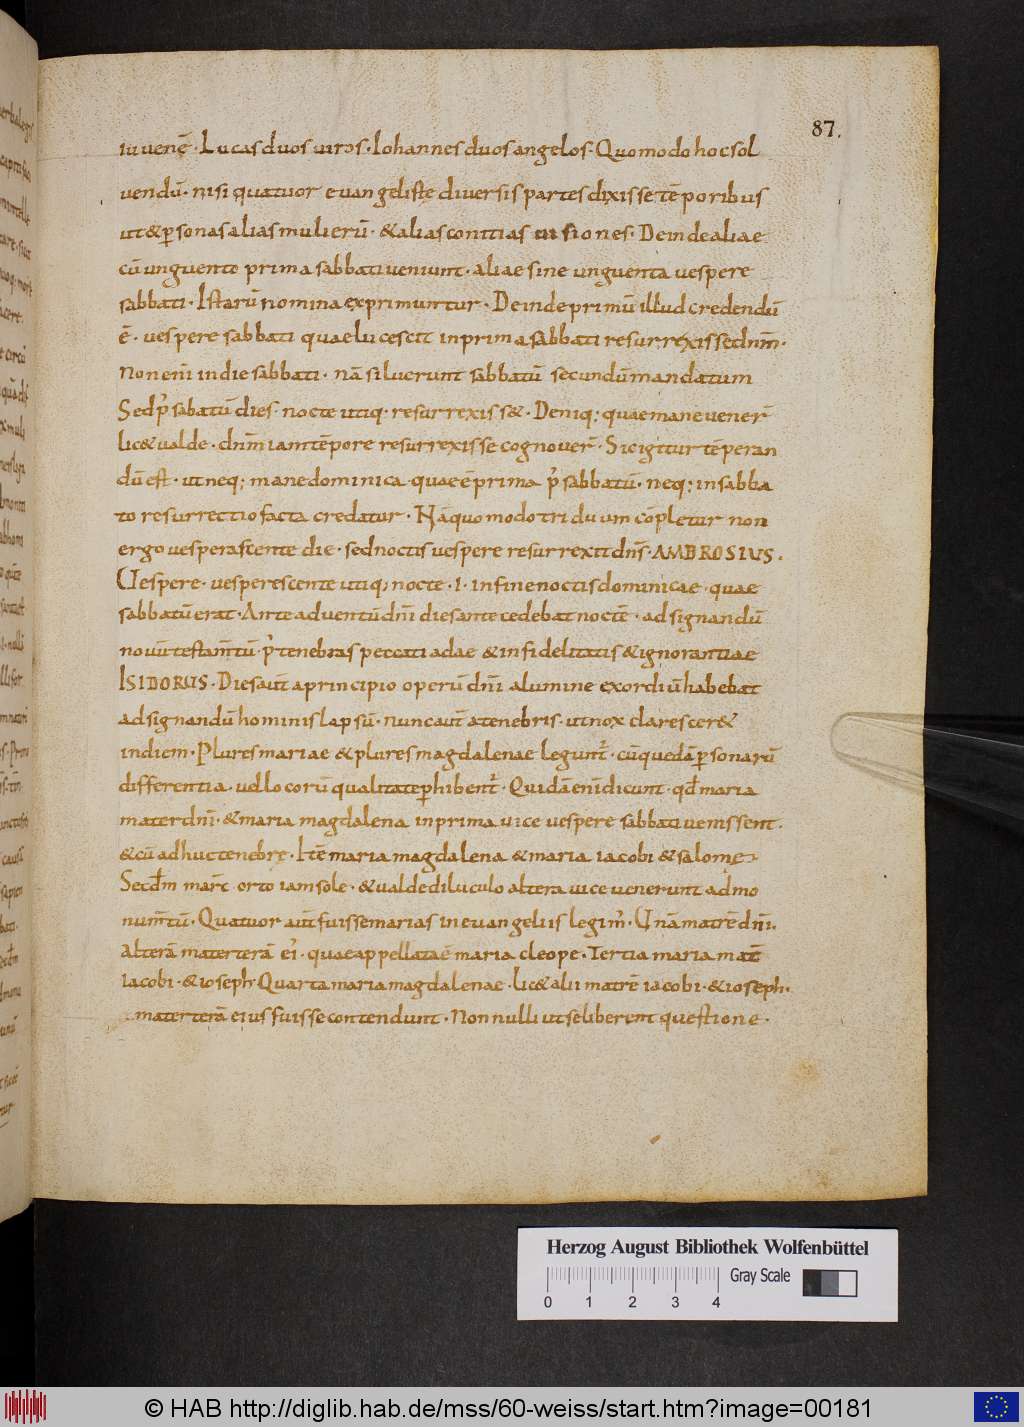 87.
iuvenē · Lucas duos viros · Iohannes duos angelos · Quomodo hoc sol
vendū · nisi quatuor evangelistę diversis partes dixisse tēporibus
ut & p̄sonas alias mulierū · & alias conitias visiones · Deinde aliae
cū unguento prima sabbati veniunt · aliae sine unguenta vespere
sabbati · Istarū nomina exprimuntur · Deinde primū illud credendū
ē · vespere sabbati quae lucescit in prima sabbati resurrexisse dnm̄ ·
Non enī in die sabbati · nā siluerunt sabbatū secundū mandatum
Sed p̓ sabatū dies · nocte utiq· resurrexiss& · Deniq; quae mane vener̄
lic& valde · dnm̄ iam tēpore resurrexisse cognover̄ · Sic igitur tēperan
dū est · ut neq; mane dominica · quae ē prima p̓ sabbatū · neq; in sabba
to resurrectio facta credatur · Nā quomodo triduum cōpletur non
ergo vesperascente die · sed noctis vespere resurrexit dn̄s · AMBROSIUS .
Vespere · vesperescente utiq; nocte · i · in fine noctis dominicae · quae
sabbatū erat · Ante adventū dn̄i dies antecedebat noctē · ad signandū
novū testam̄tū · p̓ tenebras peccati adae & infidelitatis & ignorantiae
ISIDORUS · Dies aut̄ a principio operū dn̄i a lumine exordiū habebat
ad signandū hominis lapsū · nunc aut̄ a tenebris · ut nox claresceret
in diem · Plures mariae & plures magdalenae legunt̓ · cū quedā p̄sonarū
differentia · vel locorū qualitate p̄hibent̓ · Quidā enī dicunt · qd̄ maria
mater dn̄i · & maria magdalena in prima vice vespere sabbati venissent ·
& cū adhuc tenebrę · Itē maria magdalena & maria iacobi & salomę
Secd̄m marc̄ · orto iam sole · & valde diluculo altera vice venerunt ad mo
num̄tū · Quatuor aut̄ fuisse marias in evangeliis legim̓ · Unā matrē dn̄i ·
Alterā materterā ei̓ · quae appellata ē maria cleope · Tertia maria mat̄
iacobi · & ioseph · Quarta maria magdalenae · lic& alii matrē iacobi · & ioseph ·
materterā eius fuisse contendunt · Nonnulli ut se liberent questione ·
Herzog August Bibliothek Wolfenbüttel
Gray Scale
0 1 2 3 4
© HAB http://diglib.hab.de/mss/60-weiss/start.htm?image=00181